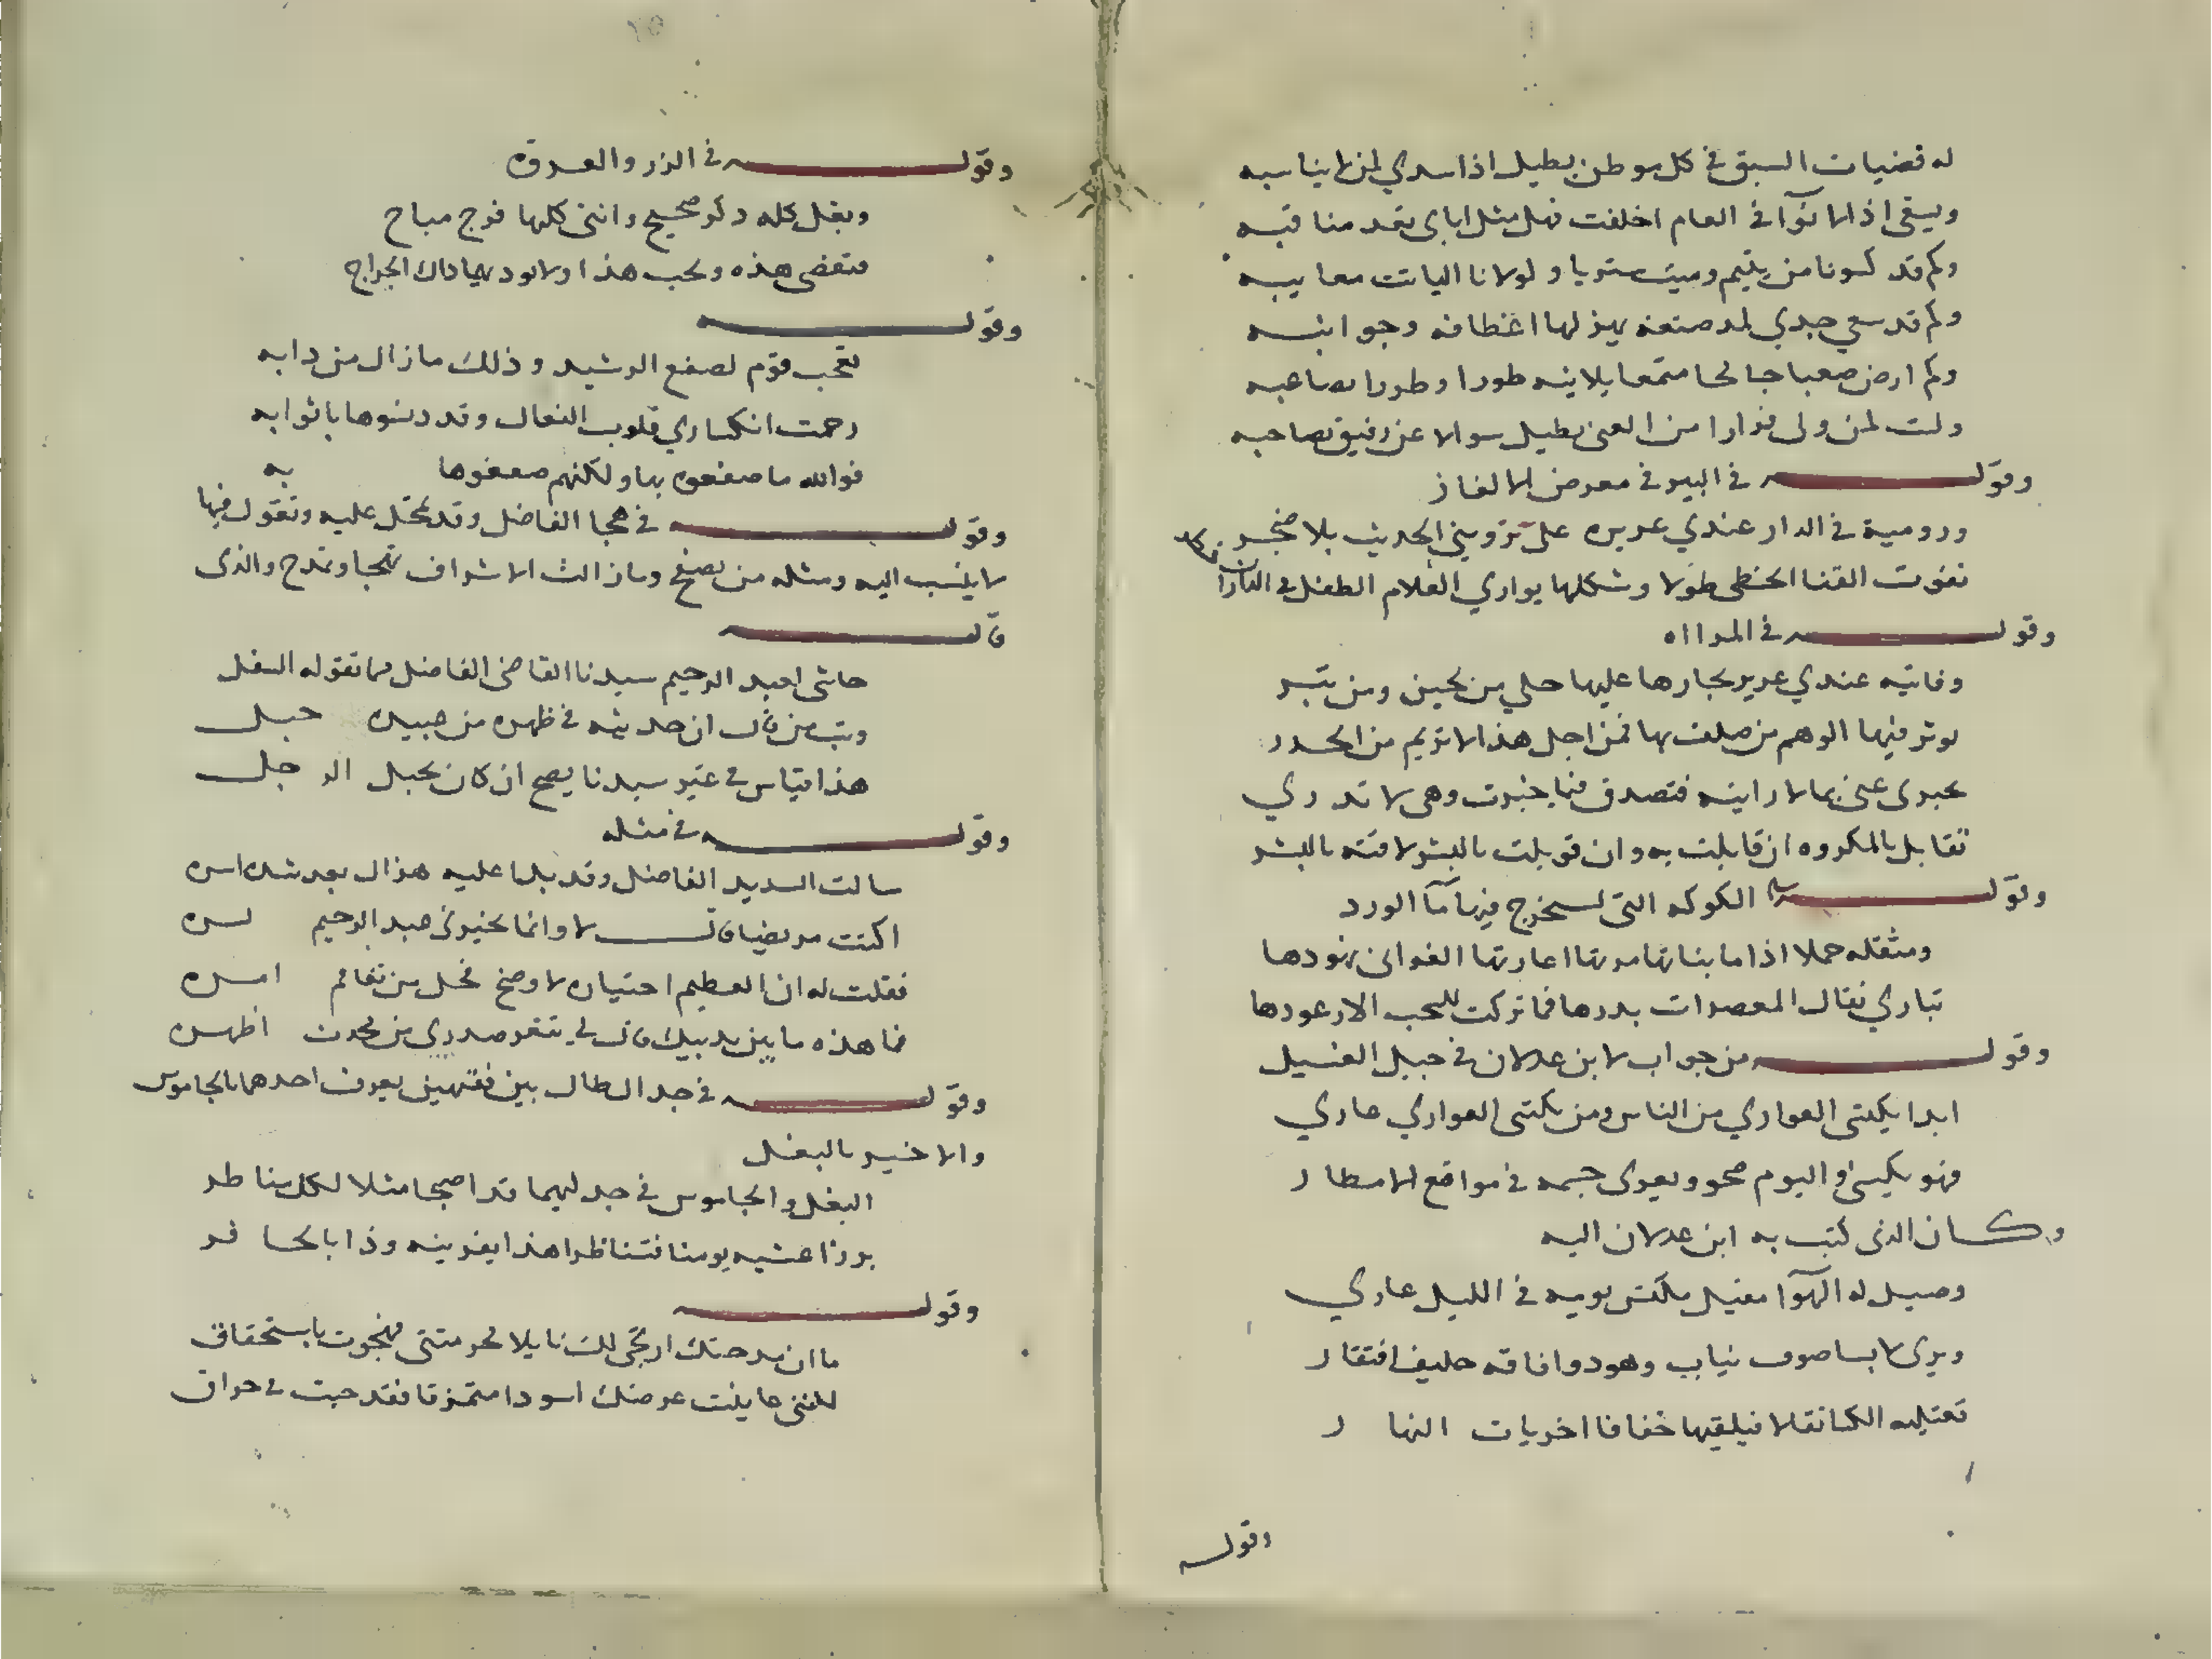 له قضيات السبق في كل موطن يطيل اذا سدي لمن لا يناسبه
ويسقي اذا الانوآ في العام اخلفت فهل مثل اياي تعد مناقبه
وكم قد كسونا من يتيم وميت ستريا ولولانا لبانت معايبه
وكم قد سعي جدي لمد صنعة يهز لها اعطافه وجوانبه
وكم ارض صعبا جالحا متمعا يلاينه طورا وطورا يصاعبه
ولت لمن ولى فرارا من العي يطيل سوالا عن رفيق يصاحبه
وقوله في البير في معرض الالغاز
ورومية في الدار عندي عزيزه على ترويني الحديث بلا ضجر
تفوت القنا الخطي طولا وشكلها يواري الغلام الطفل في
وقوله في المرااه
وفاتيه عندي عزيز نجارها عليها حلي من لجين ومن تبر
يوثر فيها الوهم من صلف بها فمن اجل هذا لا تريم من الخدر
تخبرني عني بما لا رايته فتصدق فيما خبرت وهي لا تدري
تقابل بالمكروه ان قابلت به وان قوبلت بالبشر لاقته بالبشر
وقوله الكركه التي يستخرج فيها مآ الورد
ومثقله حملا اذا ما بناتها مرتها اعارتها الغواني نهودها
تباري ثقال المعصرات بدرها فما تركت للسحب الا رعودها
وقوله من جواب لابن عدلان في جبل الغسيل
ابدا يكتسي العواري من الناس ومن يكتسي العواري عاري
فهو يكسى في اليوم صحو ويعرى جسمه في مواقع الامطار
وكان الذي كتب به ابن عدلان اليه
وصيل له الهوآ مقيل يكتسي يوميه في الليل عاري
ويرى لابسا صوف ثياب وهو ذو فاقه حليف افتقار
تعتليه الكسا ثقلا فيلقيها خفافا اخريات النهار
وقوله
وقوله في الزر والعروة
وبعل كله ذكر صحيح وانثى كلها فرج مباح
فتغضي هذه ويحب هذا ولا يود بهما ذاك الجراح
وقوله
تعجب قوم لصفع الرشيد وذلك ما زال من دابه
رحمت انكساري قلوب النعال وقد دنسوها باثوابه
فوالله ما صفعوه بها ولكنهم صفعوها به
وقوله في هجا الفاضل وقد تمحل عليه وتقول فيها
لا ينسب اليه ومثله من يصفح وما زالت الاشراف تهجا وتمدح والذي
قال
حاشى لعبد الرحيم سيدنا القاضي الفاضل مما تقوله السفل
وتب من قال ان حديثه في ظهره من عبيده حبل
هذا قياس في غير سيدنا يصح ان كان يحبل الرجل
وقوله في مثله
سالت السديد الفاضل وقد بدا عليه هزال بعد شده اسره
اكنت مريضا قال لا وانما تخيرني عبد الرحيم لسره
فقلت له ان العظيم احتياره لاوضح فحل من تفاقم امره
فما هذه ما بين يديك قال لي تقعر صدري من تحدب ظهره
وقوله في جدال طال بين فقيهين يعرف احدهما بالجاموس
والاخير بالبغل
البغل والجاموس في جدليهما قد اصبحا مثلا لكل مناظر
برزا عشيه يومنا فتناظرا هذا بقرنيه وذا بالحافر
وقوله
ما ان مدحتك ارتجي لك نايلا فحرمتني فهجوت باستحقاق
لكنني عاينت عرضك اسودا متمزقا فقدحت في حراق